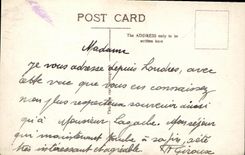 POST CARD
The ADDRESS only to be
written here
Madame
Je vous adresse depuis Londres, avec
cette vue que vous connaissez
mon plus respectueux souvenir ainsi
qu'à Monsieur Lagache. Monseigneur
qui maintenant parle à sa fois, a été
très intéressant et agréable. F. Giroux